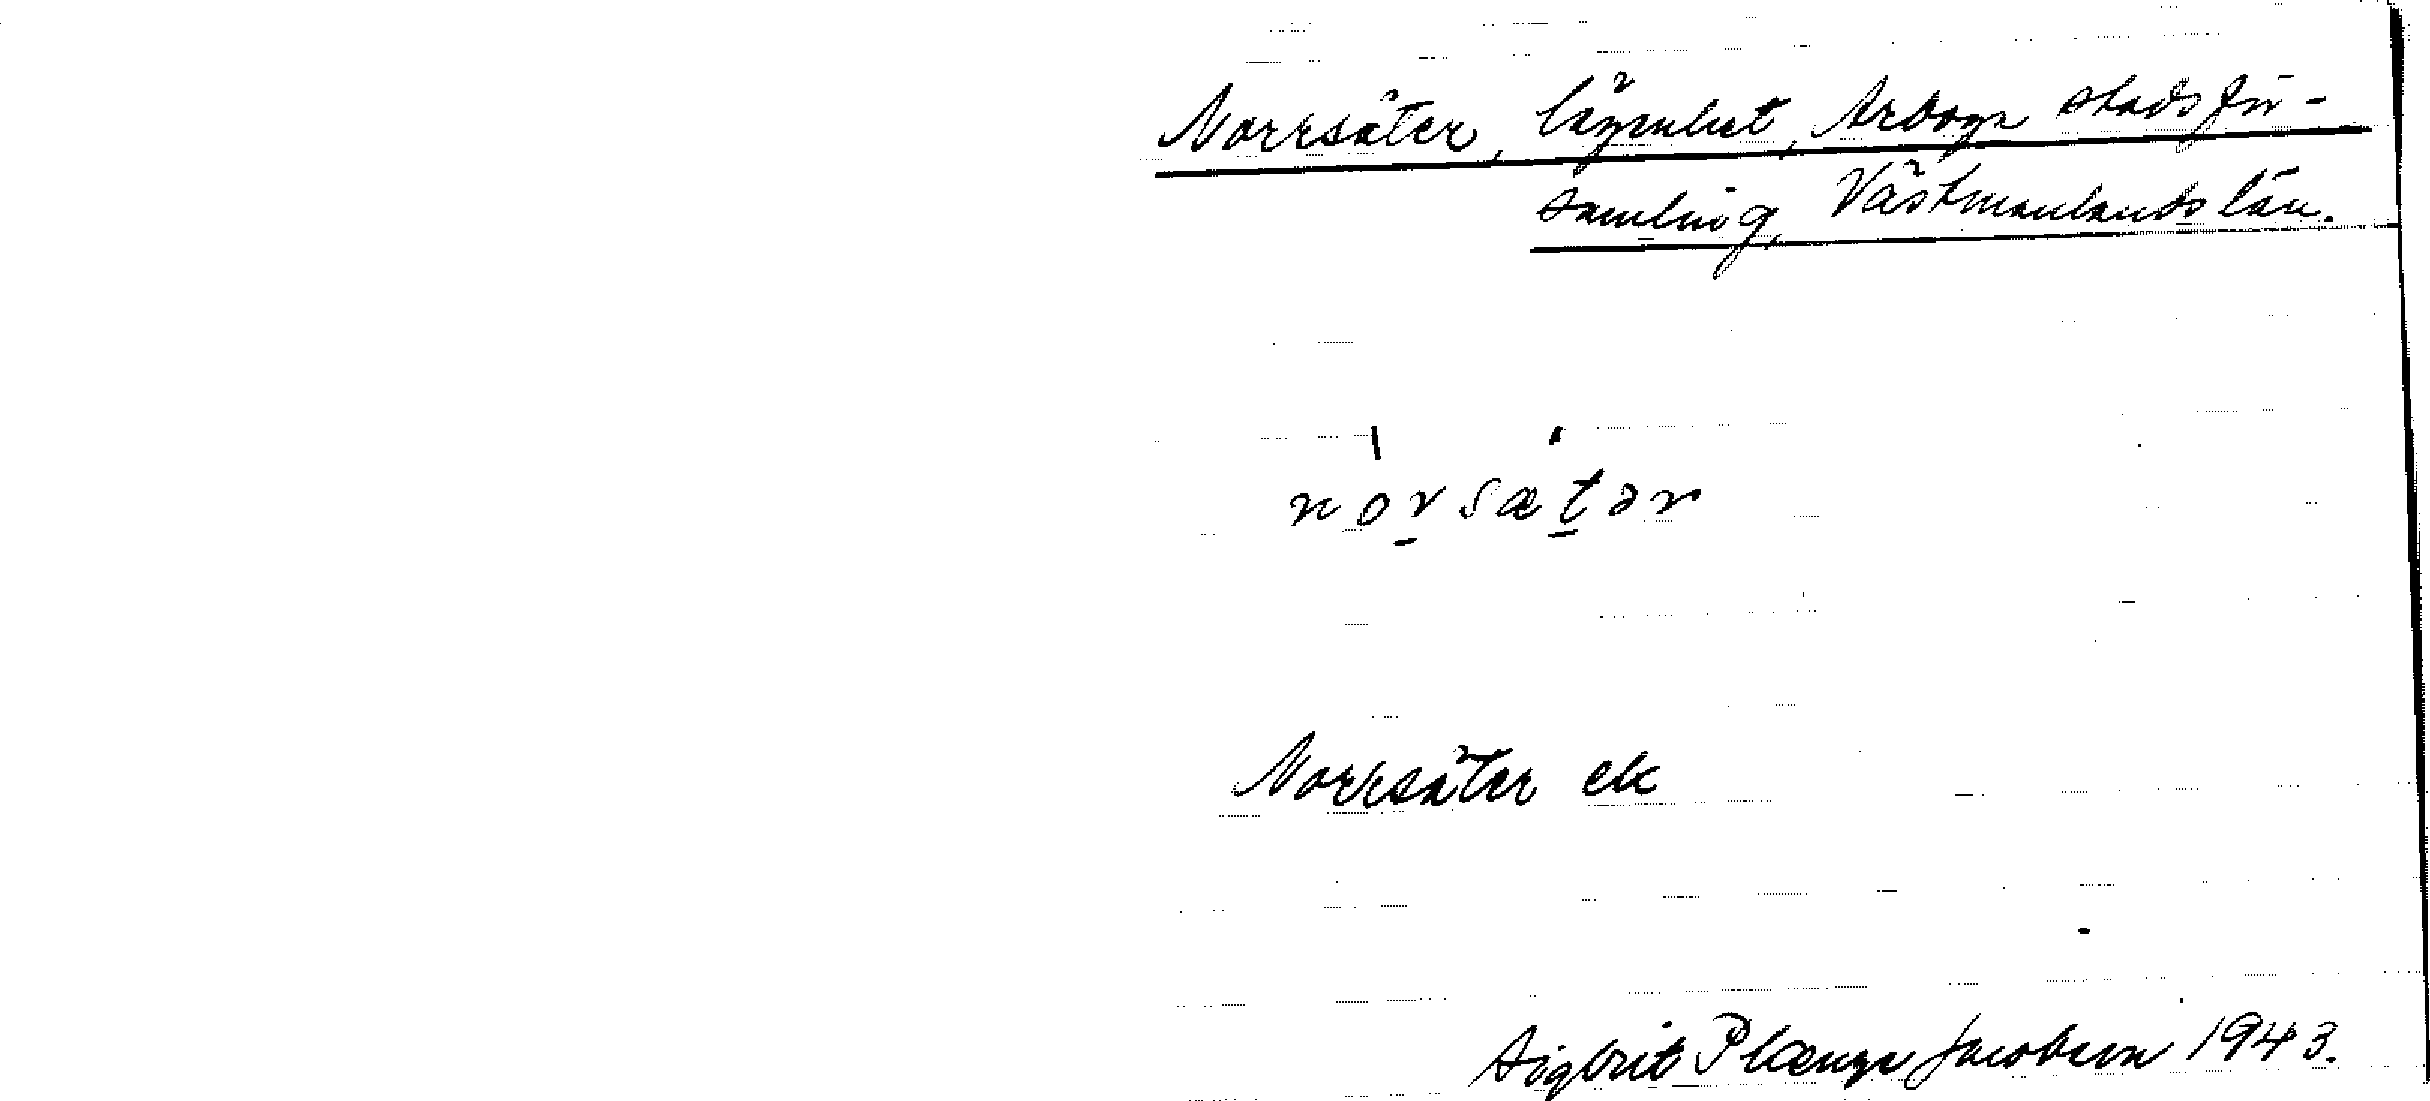 Norrsäter, lägenhet, Arboga stadsför-
samling, Västmanlands län.
norsætər
Norrsäter ek
Sigbrit Plænge Jacobson 1943.